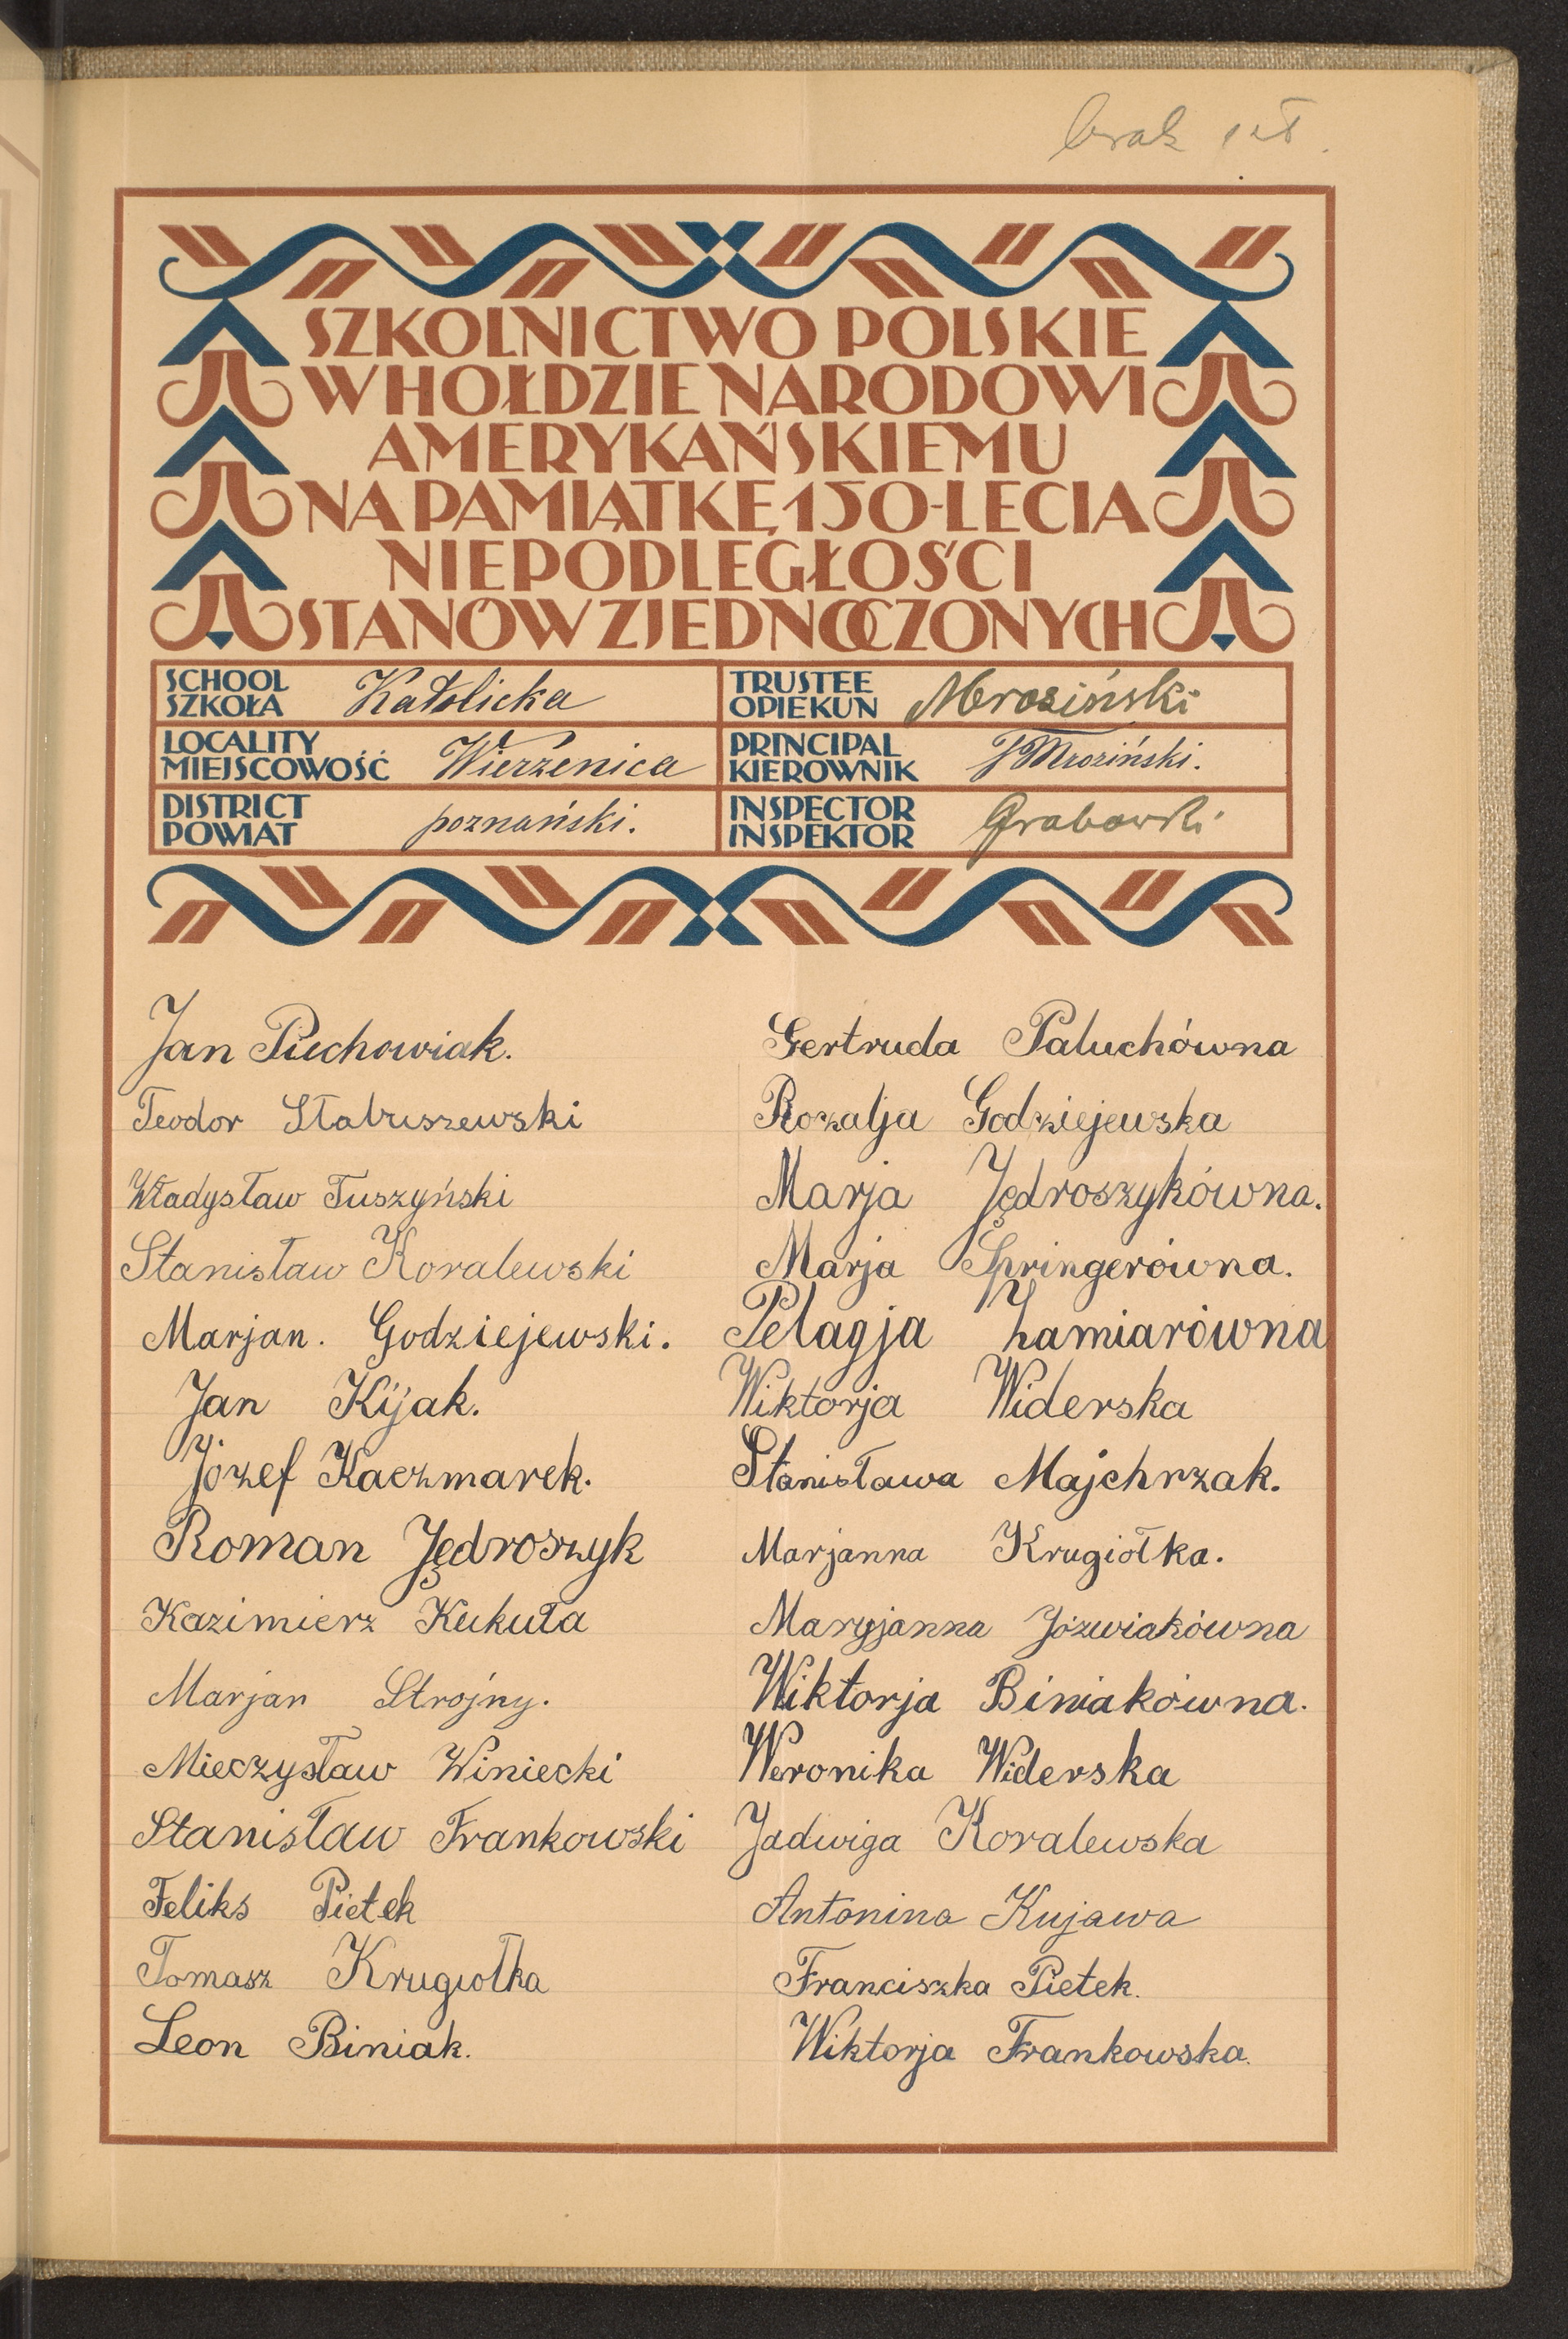 brak
SZKOLNICTWO POLSKIE
W HOŁDZIE NARODOWI
AMERYKAŃSKIEMU
NA PAMIĄTKĘ 150-LECIA
NIEPODLEGŁOŚCI
STANÓW ZJEDNOCZONYCH
SCHOOL
SZKOŁA Katolicka
TRUSTEE
OPIEKUN Mroziński
LOCALITY
MIEJSCOWOŚĆ Wierzenica
PRINCIPAL
KIEROWNIK J Mroziński.
DISTRICT
POWIAT poznański.
INSPECTOR
INSPEKTOR Grabowski
Jan Piechowiak.
Teodor Stabuszewski
Władysław Tuszyński
Stanisław Koralewski
Marjan. Godziejewski.
Jan Kijak.
Józef Kaczmarek.
Roman Jędroszyk
Kazimierz Kukuła
Marjan Strojny.
Mieczysław Winiecki
Stanisław Frankowski
Feliks Pietek
Tomasz Krugiołka
Leon Biniak.
Gertruda Paluchówna
Rozalja Godziejewska
Marja Jędroszykówna.
Marja Springerówna.
Pelagja Żamiarówna
Wiktorja Widerska
Stanisława Majchrzak.
Marjanna Krugiołka.
Maryjanna Józwiakówna
Wiktorja Biniakówna.
Weronika Widerska
Jadwiga Koralewska
Antonina Kujawa
Franciszka Pietek.
Wiktorja Frankowska.